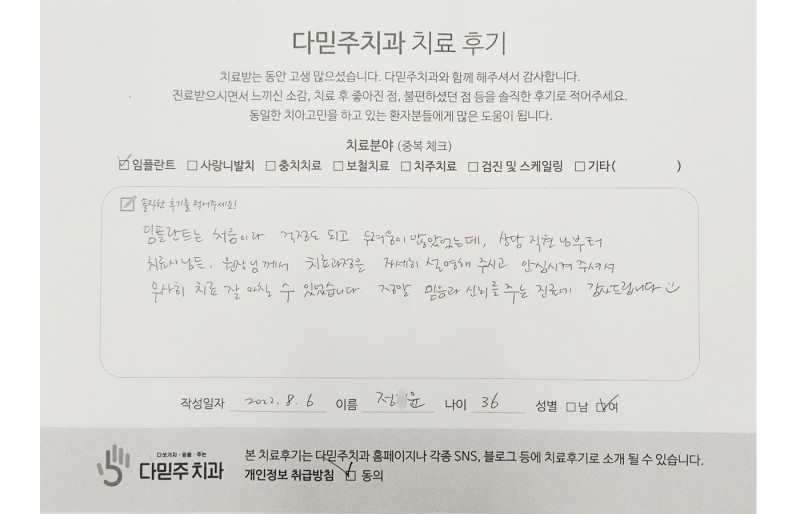 다믿주치과 치료 후기
치료받는 동안 고생 많으셨습니다. 다믿주치과와 함께 해주셔서 감사합니다.
진료받으시면서 느끼신 소감, 치료 후 좋아진 점, 불편하셨던 점 등을 솔직한 후기로 적어주세요.
동일한 치아고민을 하고 있는 환자분들에게 많은 도움이 됩니다.
치료분야 (중복 체크)
☑임플란트 □사랑니발치 □충치치료 □보철치료 □치주치료 □검진 및 스케일링 □기타( )
솔직한 후기를 적어주세요!
임플란트는 처음이라 걱정도 되고 두려움이 많았었는데, 상담 직원님부터
치료사님들, 원장님께서 치료과정을 자세히 설명해 주시고 안심시켜 주셔서
무사히 치료 잘 마칠 수 있었습니다 정말 믿음과 신뢰를 주는 진료에 감사드립니다
작성일자 2022. 8. 6 이름 정 윤 나이 36 성별 □남 ☑여
다섯가지·믿음·주는
다믿주치과
본 치료후기는 다믿주치과 홈페이지나 각종 SNS, 블로그 등에 치료후기로 소개 될 수 있습니다.
개인정보 취급방침 ☑ 동의